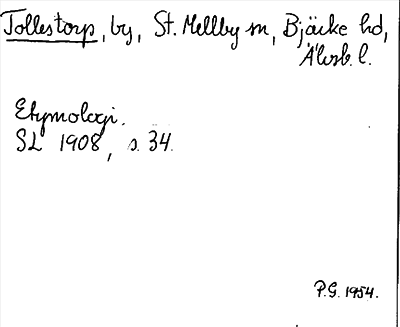 Tollestorp, by, St. Mellby sn, Bjäcke hd,
Älvsb. l.
Etymologi.
SL 1908, s. 34.
P.G. 1954.